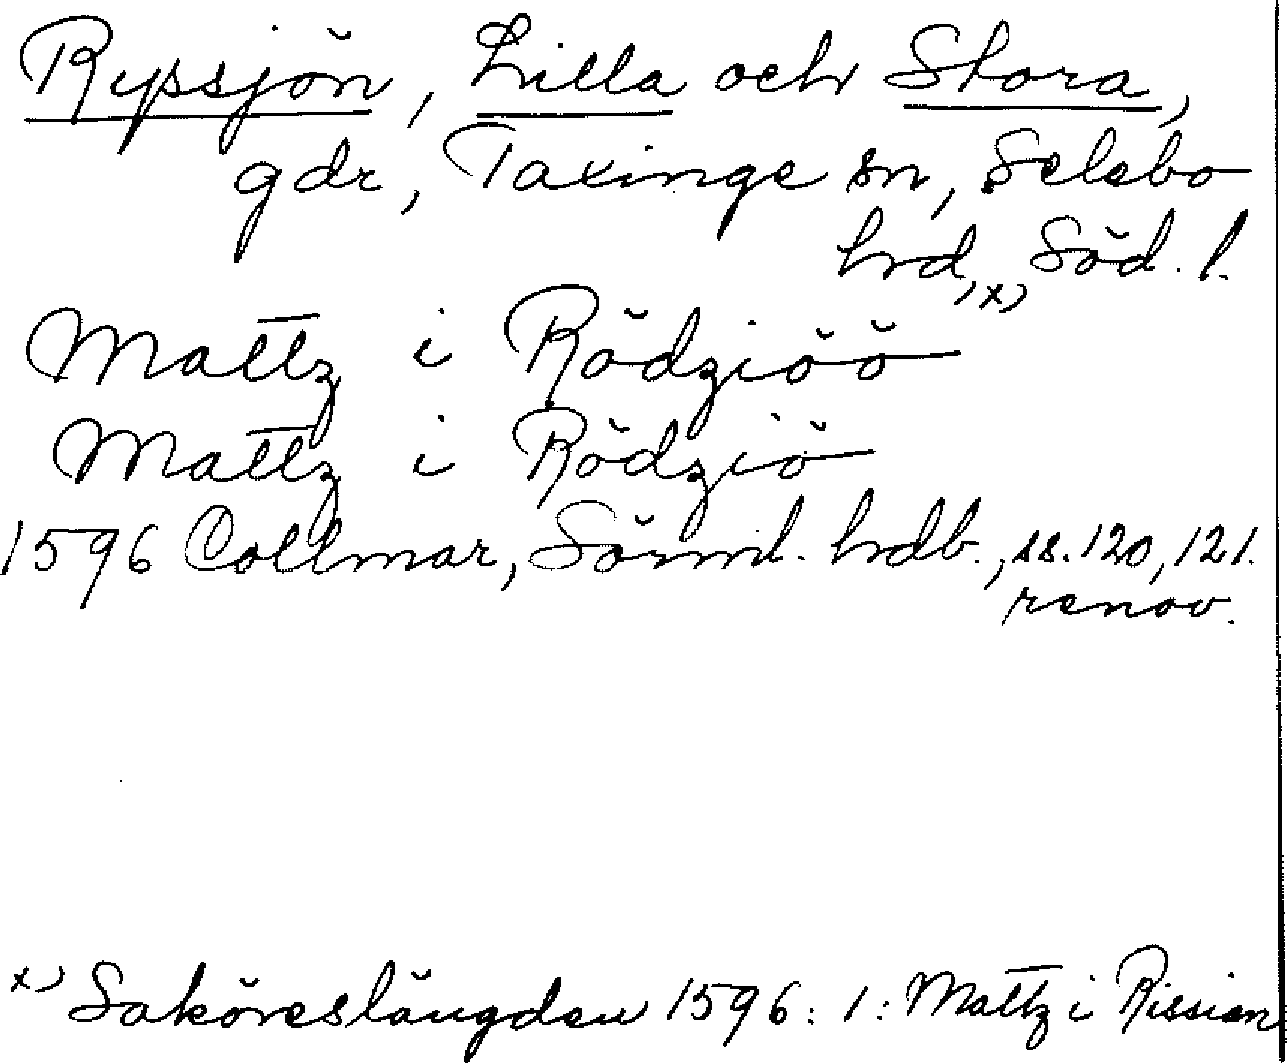 Ryssjön, Lilla och Stora,
gdr, Taxinge sn, Selebo
hrd,x) Söd. l.
Mattz i Rödziöö
Mattz i Rödziö
1596 Collmar, Sörml. hdb., ss. 120, 121.
renov.
x) Saköreslängden 1596: 1: Mattz i Rissiön